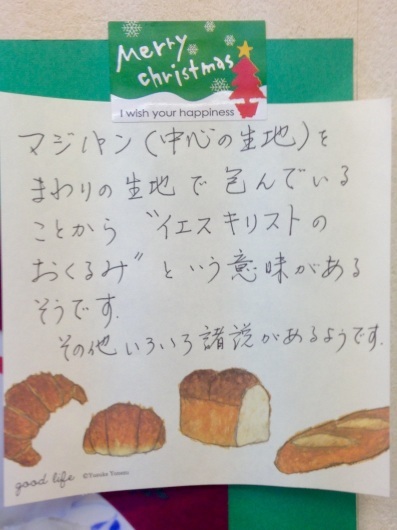 Merry
christmas
I wish your happiness
マジパン(中心の生地)を
まわりの生地で包んでいる
ことから"イエスキリストの
おくるみ"という意味がある
そうです.
その他いろいろ諸説があるようです.
good life ©Yusuke Yonezu